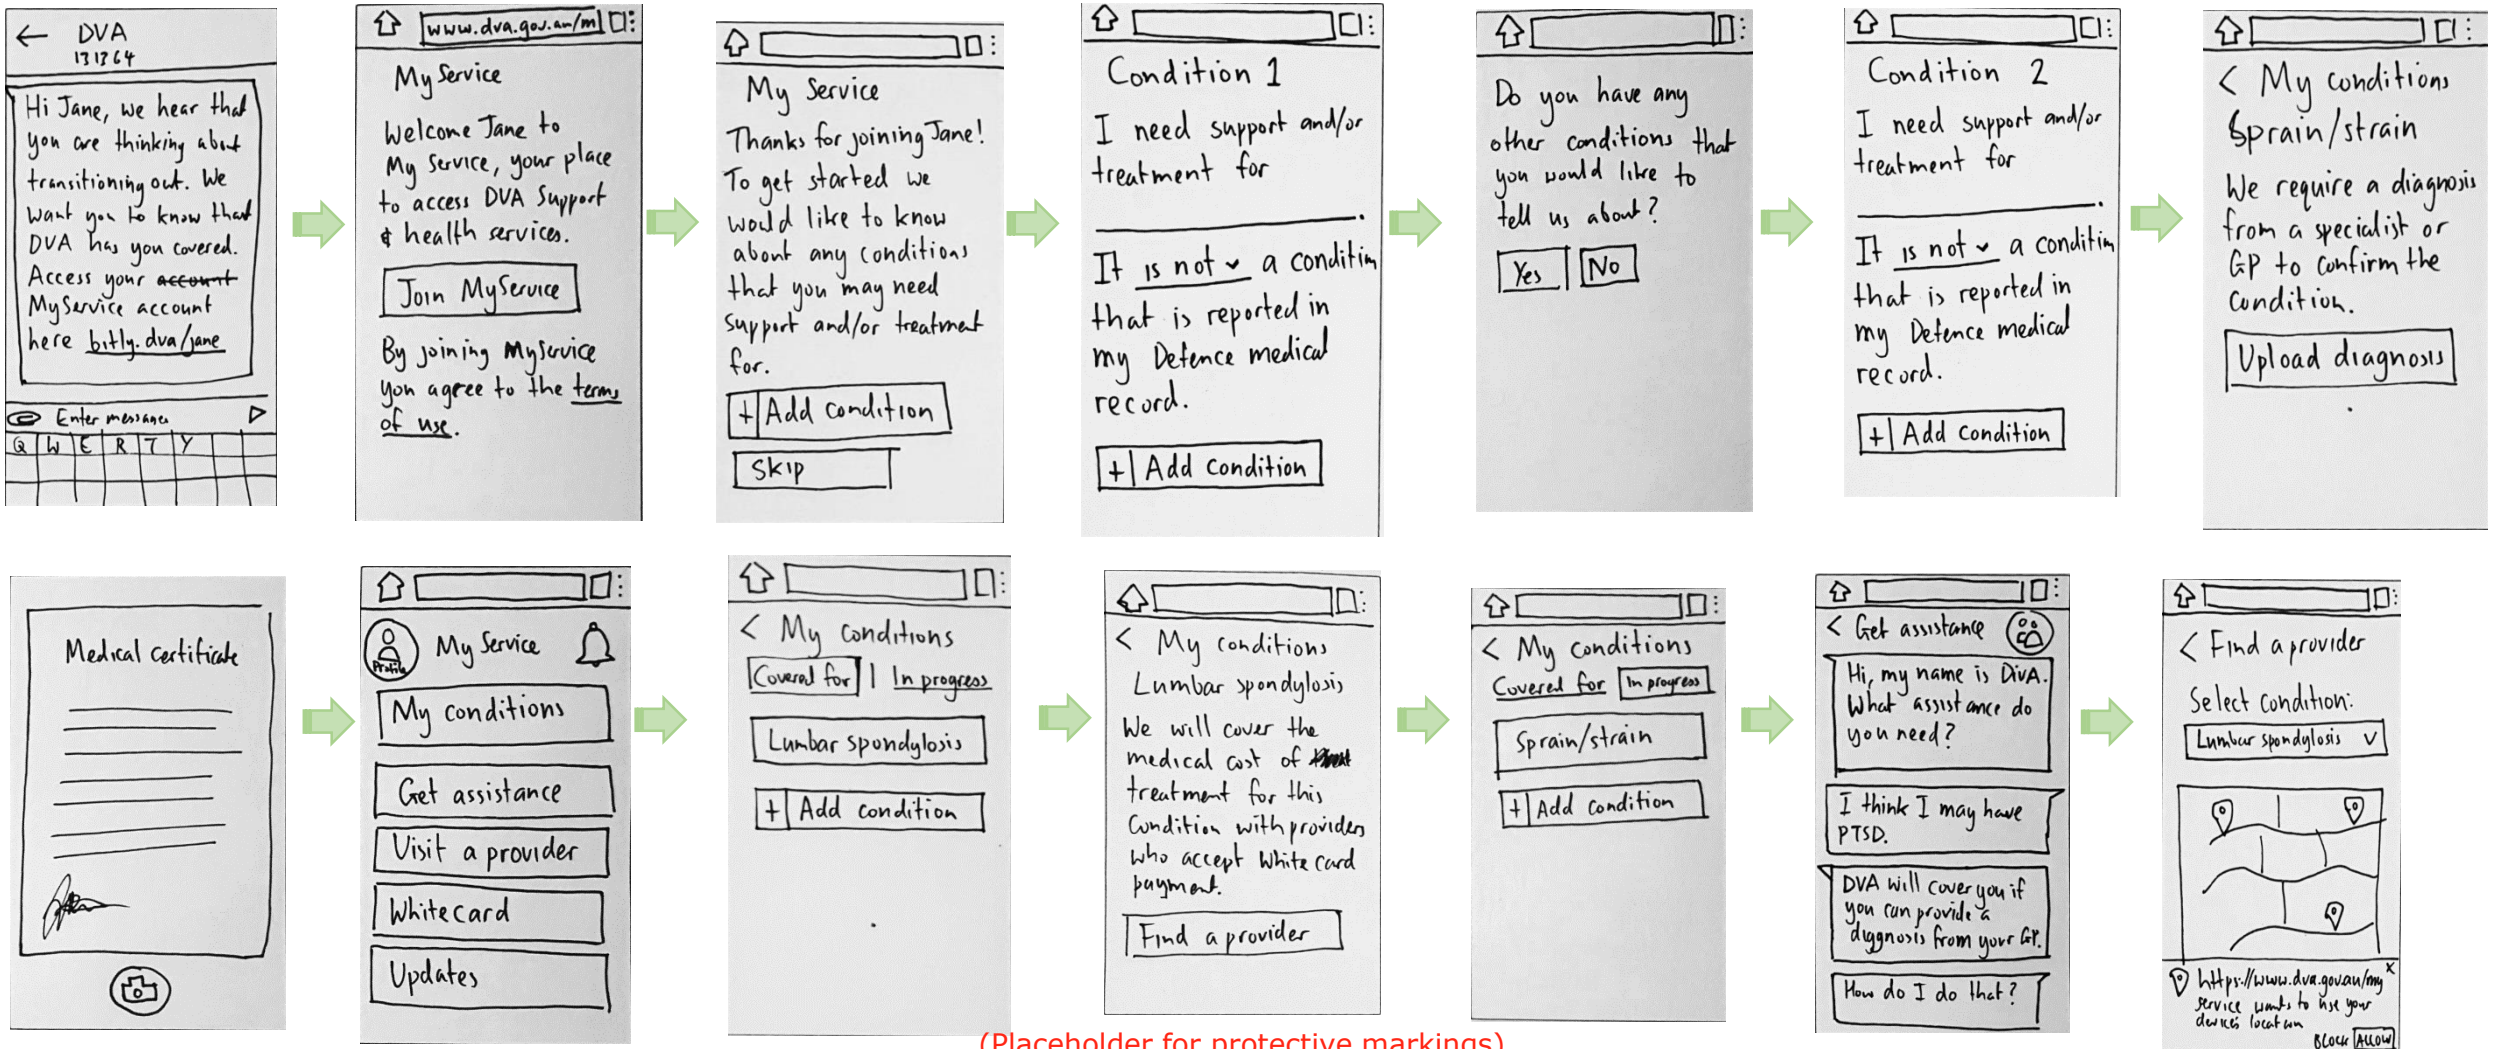 ← DVA
131364
Hi Jane, we hear that
you are thinking about
transitioning out. We
want you to know that
DVA has you covered.
Access your account
MyService account
here bitly.dva/jane
Enter message
Q W E R T Y
www.dva.gov.au/m
My Service
Welcome Jane to
My Service, your place
to access DVA Support
& health services.
Join MyService
By joining MyService
you agree to the terms
of use.
My Service
Thanks for joining Jane!
To get started we
would like to know
about any conditions
that you may need
support and/or treatment
for.
+ Add condition
Skip
Condition 1
I need support and/or
treatment for
.
It is not a condition
that is reported in
my Defence medical
record.
+ Add condition
Do you have any
other conditions that
you would like to
tell us about?
Yes No
Condition 2
I need support and/or
treatment for
.
It is not a condition
that is reported in
my Defence medical
record.
+ Add condition
< My conditions
Sprain/strain
We require a diagnosis
from a specialist or
GP to confirm the
condition.
Upload diagnosis
Medical certificate
Profile
My Service
My conditions
Get assistance
Visit a provider
Whitecard
Updates
< My conditions
Covered for | In progress
Lumbar spondylosis
+ Add condition
< My conditions
Lumbar spondylosis
We will cover the
medical cost of
treatment for this
condition with providers
who accept White card
payment.
Find a provider
< My conditions
Covered for In progress
Sprain/strain
+ Add condition
< Get assistance
Hi, my name is DivA.
What assistance do
you need?
I think I may have
PTSD.
DVA will cover you if
you can provide a
diagnosis from your GP.
How do I do that?
< Find a provider
Select condition:
Lumbar spondylosis
https://www.dva.gov.au/my x
service wants to use your
device's location
BLOCK ALLOW
(Placeholder for protective markings)